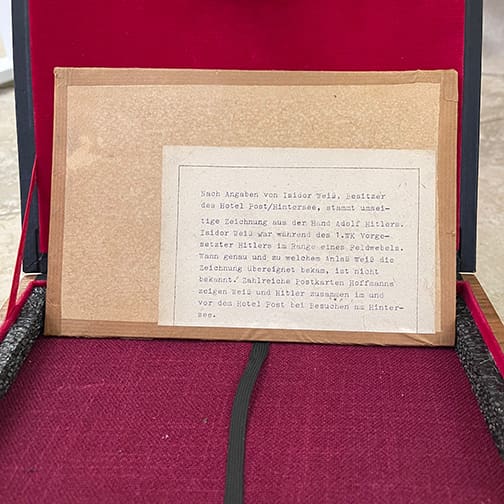 Nach Angaben von Isidor Weiß, Besitzer
des Hotel Post/Hintersee, stammt umsei-
tige Zeichnung aus der Hand Adolf Hitlers.
Isidor Weiß war während des 1.WK Vorge-
setzter Hitlers im Range eines Feldwebels.
Wann genau und zu welchem Anlaß Weiß die
Zeichnung übereignet bekam, ist nicht
bekannt. Zahlreiche Postkarten Hoffmanns
zeigen Weiß und Hitler zusammen im und
vor dem Hotel Post bei Besuchen am Hinter-
see.